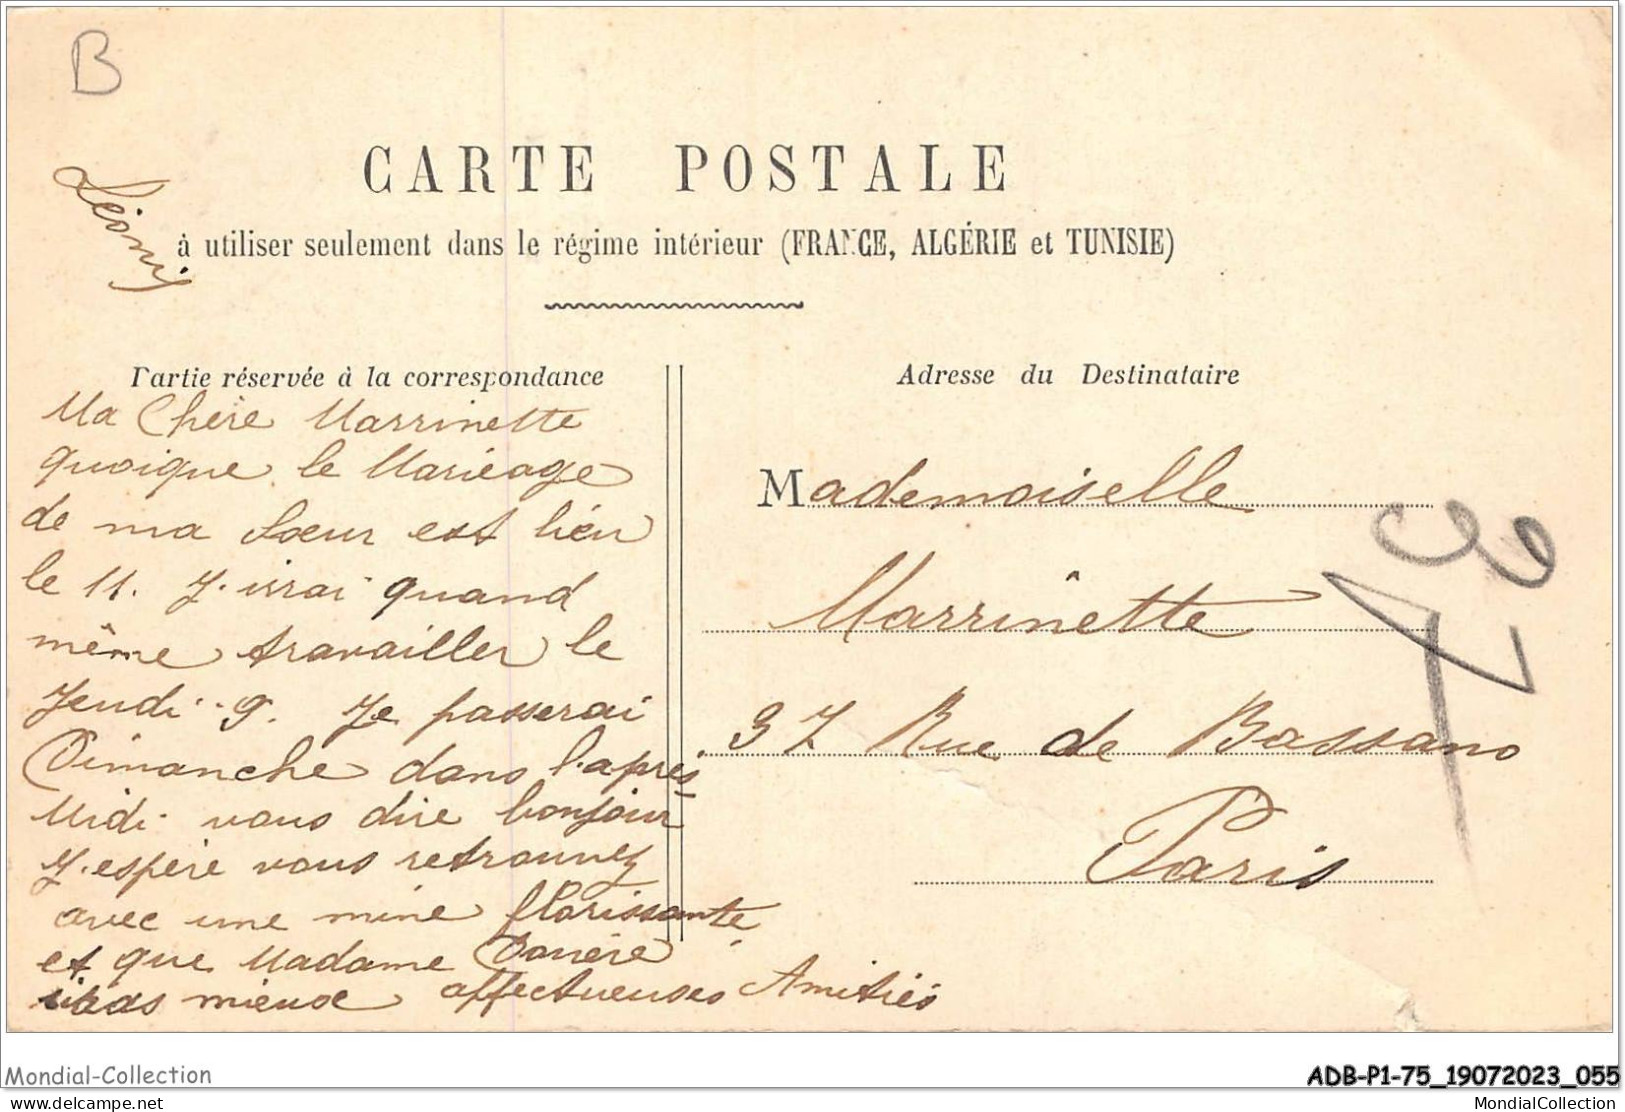 B
CARTE POSTALE
à utiliser seulement dans le régime intérieur (FRANCE, ALGÉRIE et TUNISIE)
Léony
Partie réservée à la correspondance
Ma Chère Marrinette
quoique le Mariéage
de ma Sœur est liéu
le 11. J. irrai quand
même travailler le
Jeudi 9. Je passerai
Dimanche dans l'après
Midi vous dire bonjour
J. espère vous retrouvez
avec une mine florissante
et que Madame
mieux affectueuses Amitiés
Adresse du Destinataire
Mademoiselle
Marrinêtte
37 Rue de Bassano
Paris
Mondial-Collection
ADB-P1-75_19072023_055
delcampe.net
MondialCollection